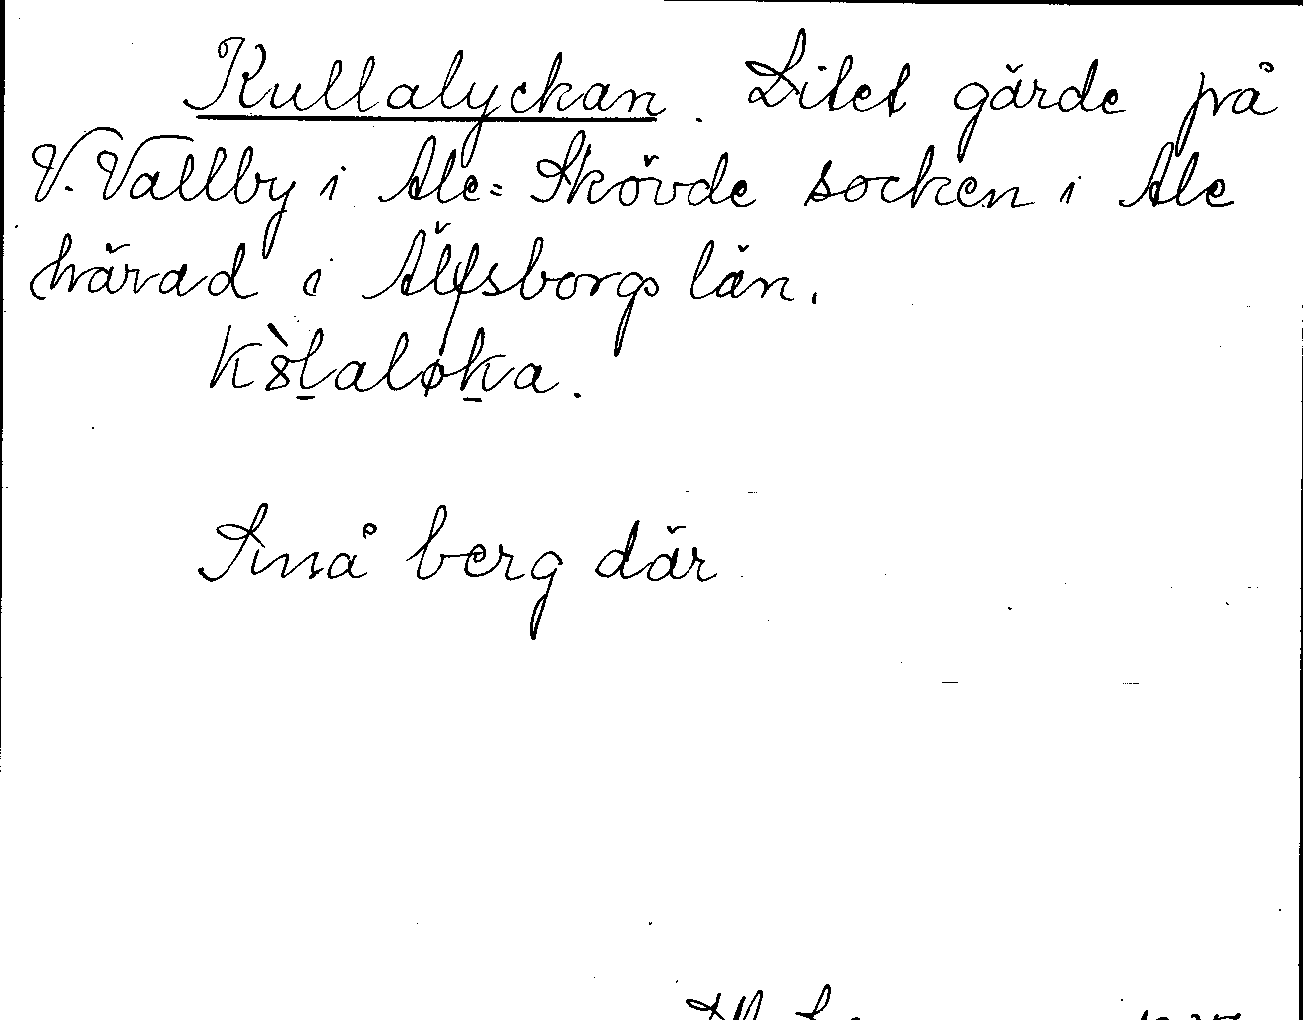 Kullalyckan. Litet gärde på
V. Vallby i Ale-Skövde socken i Ale
härad i Älfsborgs län.
Små berg där